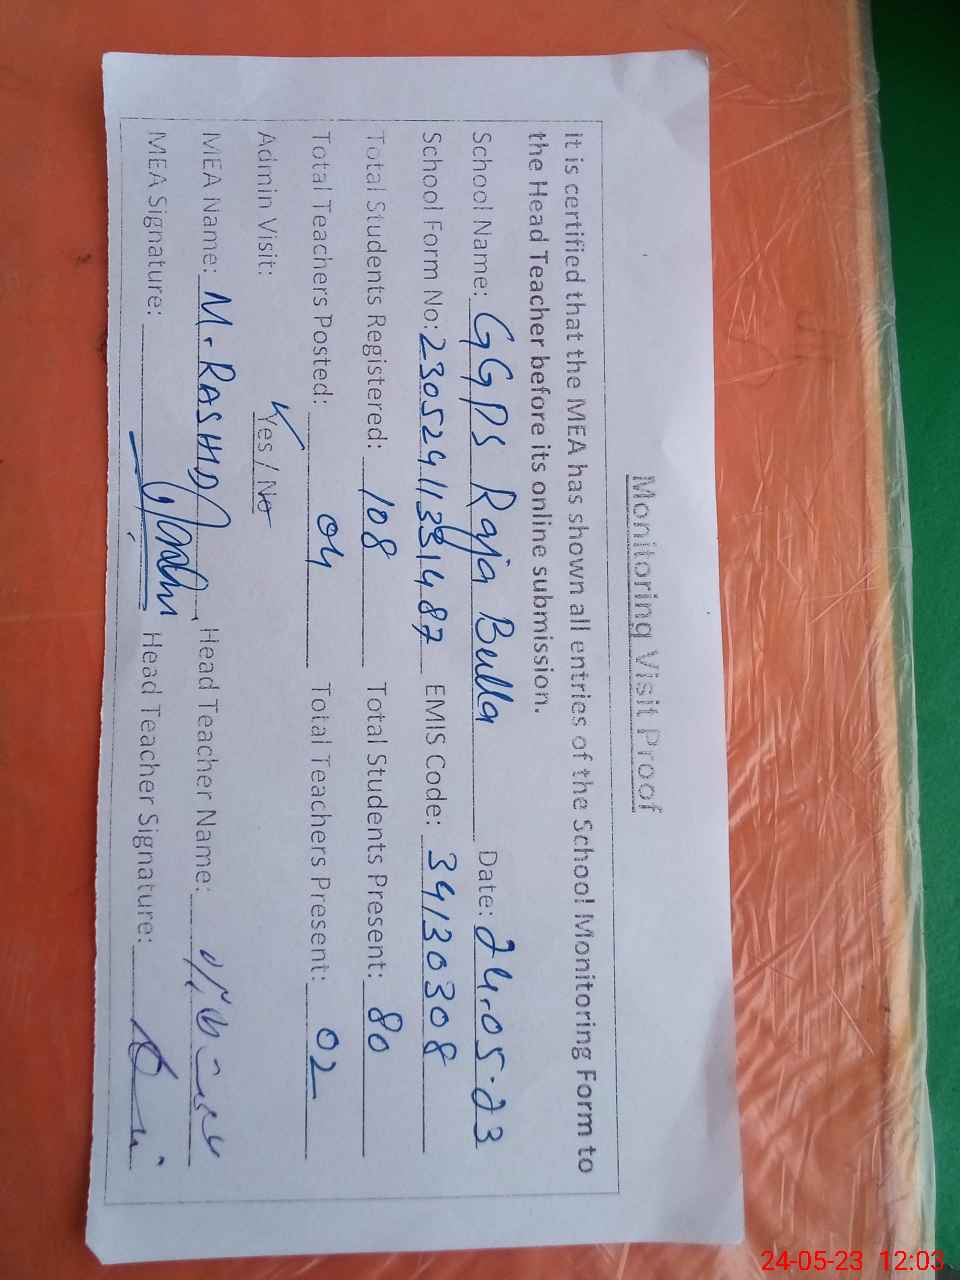 Monitoring Visit Proof
it is certified that the MEA has shown all entries of the School Monitoring Form to
the Head Teacher before its online submission.
School Name: GGPS Raja Bulla Date: 24.05.23
School Form No: 23052411331487 EMIS Code: 34130308
Total Students Registered: 108 Total Students Present: 80
Total Teachers Posted: 04 Total Teachers Present: 02
Admin Visit: Yes / No
MEA Name: M. RASHID Head Teacher Name:
MEA Signature: Head Teacher Signature:
24-05-23 12:03